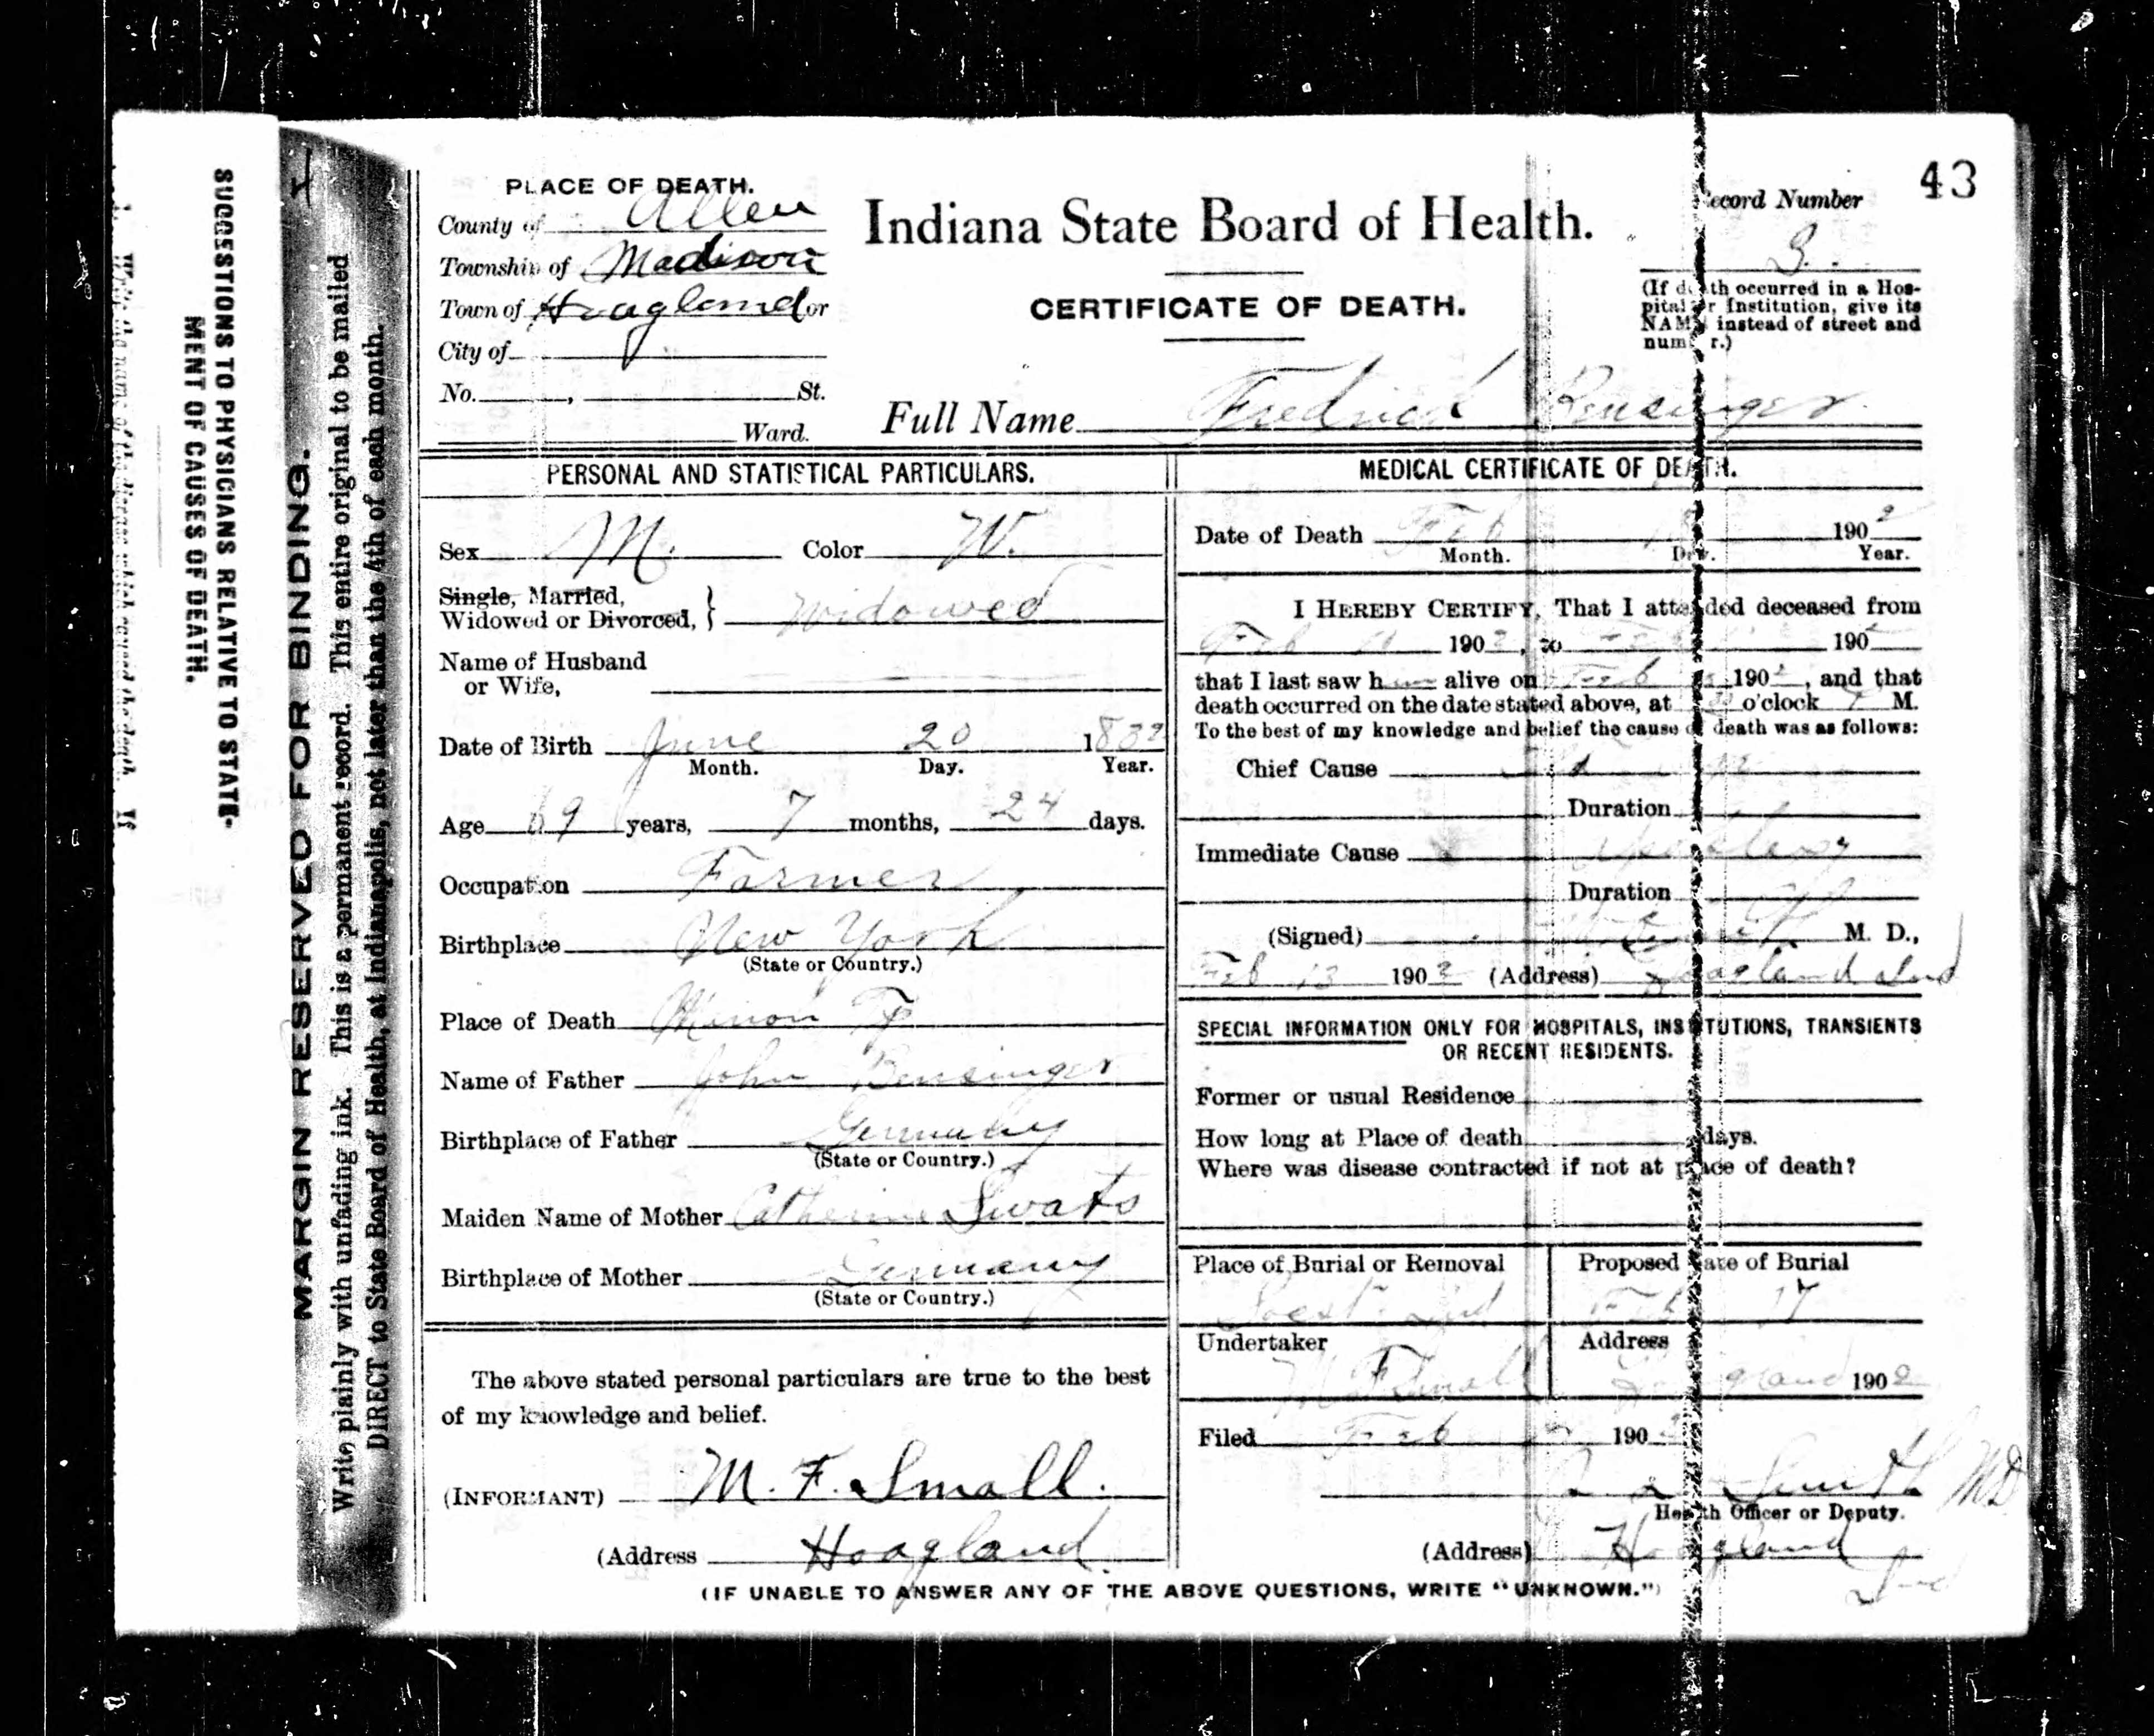 43
PLACE OF DEATH.
County of Allen
Township of Madison
Town of Hoagland or
City of
No. , St.
Ward.
Indiana State Board of Health.
CERTIFICATE OF DEATH.
Record Number
3.
(If death occurred in a Hos-
pital or Institution, give its
NAME instead of street and
number.)
Full Name Fredrick Bensinger
PERSONAL AND STATISTICAL PARTICULARS.
Sex M. Color W.
Single, Married,
Widowed or Divorced, } Widowed
Name of Husband
or Wife,
Date of Birth June 20 1832
Month. Day. Year.
Age 69 years, 7 months, 24 days.
Occupation Farmer
Birthplace New York
(State or Country.)
Place of Death
Name of Father John Bensinger
Birthplace of Father Germany
(State or Country.)
Maiden Name of Mother Catherine Swats
Birthplace of Mother Germany
(State or Country.)
The above stated personal particulars are true to the best
of my knowledge and belief.
(INFORMANT) M. F. Small.
(Address Hoagland
MEDICAL CERTIFICATE OF DEATH.
Date of Death Feb 1902
Month. Day. Year.
I HEREBY CERTIFY, That I attended deceased from
Feb 190 , to 190
that I last saw h alive on Feb 190 , and that
death occurred on the date stated above, at o'clock M.
To the best of my knowledge and belief the cause of death was as follows:
Chief Cause
Duration
Immediate Cause
Duration
(Signed) M. D.,
Feb 13 190 (Address) Hoagland Ind
SPECIAL INFORMATION ONLY FOR HOSPITALS, INSTITUTIONS, TRANSIENTS
OR RECENT RESIDENTS.
Former or usual Residence
How long at Place of death days.
Where was disease contracted if not at place of death?
Place of Burial or Removal
Ind
Proposed Date of Burial
Feb 17
Undertaker
M F Small
Address
Hoagland 1902
Filed Feb 190
Smith MD
Health Officer or Deputy.
(Address) Hoagland
Ind
(IF UNABLE TO ANSWER ANY OF THE ABOVE QUESTIONS, WRITE "UNKNOWN.")
MARGIN RESERVED FOR BINDING.
Write plainly with unfading ink. This is a permanent record. This entire original to be mailed
DIRECT to State Board of Health, at Indianapolis, not later than the 4th of each month.
SUGGESTIONS TO PHYSICIANS RELATIVE TO STATE-
MENT OF CAUSES OF DEATH.